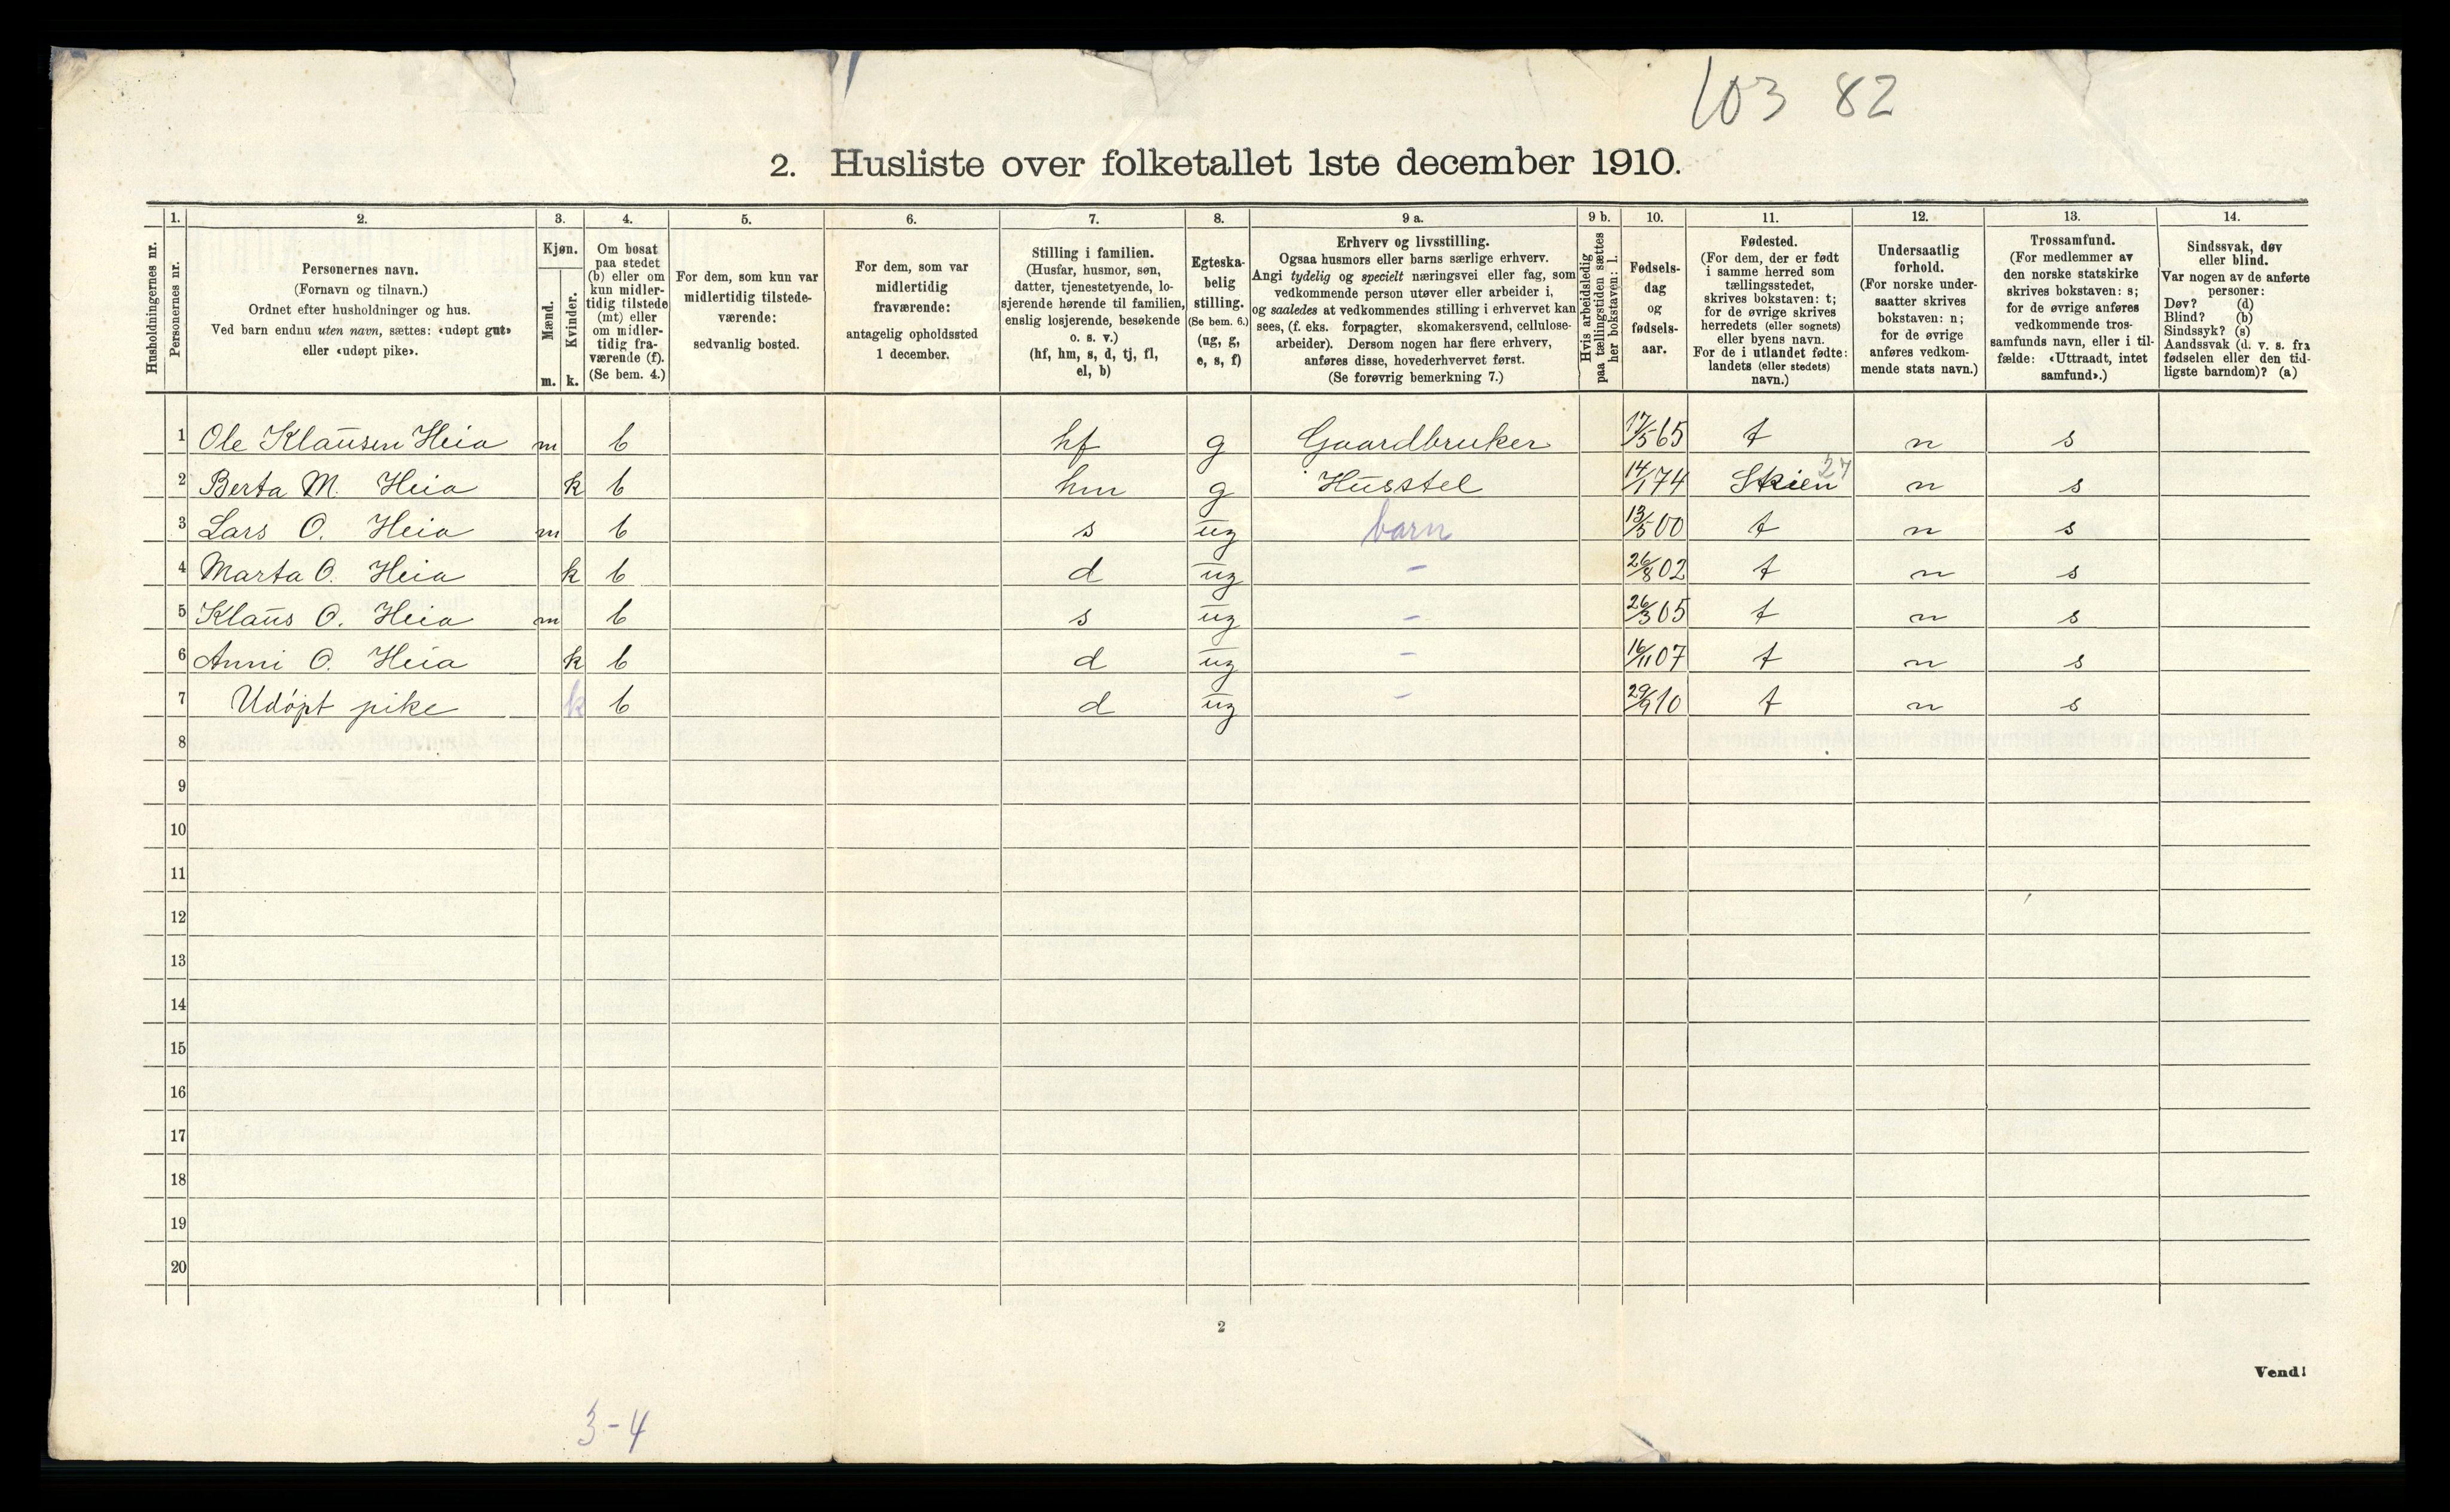 103 82
2. Husliste over folketallet 1ste december 1910.
Husholdningernes nr.
1.
Personernes nr.
2.
Personernes navn.
(Fornavn og tilnavn.)
Ordnet efter husholdninger og hus.
Ved barn endnu uten navn, sættes: «udøpt gut»
eller «udøpt pike».
3.
Kjøn.
Mænd.
Kvinder.
m. k.
4.
Om bosat
paa stedet
(b) eller om
kun midler-
tidig tilstede
(mt) eller
om midler-
tidig fra-
værende (f).
(Se bem. 4.)
5.
For dem, som kun var
midlertidig tilstede-
værende:
sedvanlig bosted.
6.
For dem, som var
midlertidig
fraværende:
antagelig opholdssted
1 december.
7.
Stilling i familien.
(Husfar, husmor, søn,
datter, tjenestetyende, lo-
sjerende hørende til familien,
enslig losjerende, besøkende
o. s. v.)
(hf, hm, s, d, tj, fl,
el, b)
8.
Egteska-
belig
stilling.
(Se bem. 6.)
(ug, g,
e, s, f)
9 a.
Erhverv og livsstilling.
Ogsaa husmors eller barns særlige erhverv.
Angi tydelig og specielt næringsvei eller fag, som
vedkommende person utøver eller arbeider i,
og saaledes at vedkommendes stilling i erhvervet kan
sees, (f. eks. forpagter, skomakersvend, cellulose-
arbeider). Dersom nogen har flere erhverv,
anføres disse, hovederhvervet først.
(Se forøvrig bemerkning 7.)
9 b.
Hvis arbeidsledig
paa tællingstiden sættes
her bokstaven: l.
10.
Fødsels-
dag
og
fødsels-
aar.
11.
Fødested.
(For dem, der er født
i samme herred som
tællingsstedet,
skrives bokstaven: t;
for de øvrige skrives
herredets (eller sognets)
eller byens navn.
For de i utlandet fødte:
landets (eller stedets)
navn.)
12.
Undersaatlig
forhold.
(For norske under-
saatter skrives
bokstaven: n;
for de øvrige
anføres vedkom-
mende stats navn.)
13.
Trossamfund.
(For medlemmer av
den norske statskirke
skrives bokstaven: s;
for de øvrige anføres
vedkommende tros-
samfunds navn, eller i til-
fælde: «Uttraadt, intet
samfund».)
14.
Sindssvak, døv
eller blind.
Var nogen av de anførte
personer:
Døv? (d)
Blind? (b)
Sindssyk? (s)
Aandssvak (d. v. s. fra
fødselen eller den tid-
ligste barndom)? (a)
1 Ole Klausen Heia m b hf g Gaardbruker 17/5 65 t n s
2 Berta M. Heia k b hm g Husstel 14/1 74 Skien 27 n s
3 Lars O. Heia m b s ug barn 13/5 00 t n s
4 Marta O. Heia k b d ug - 26/8 02 t n s
5 Klaus O. Heia m b s ug - 26/3 05 t n s
6 Anni O. Heia k b d ug - 16/11 07 t n s
7 Udøpt pike k b d ug - 29/9 10 t n s
8
9
10
11
12
13
14
15
16
17
18
19
20
2
Vend!
3-4